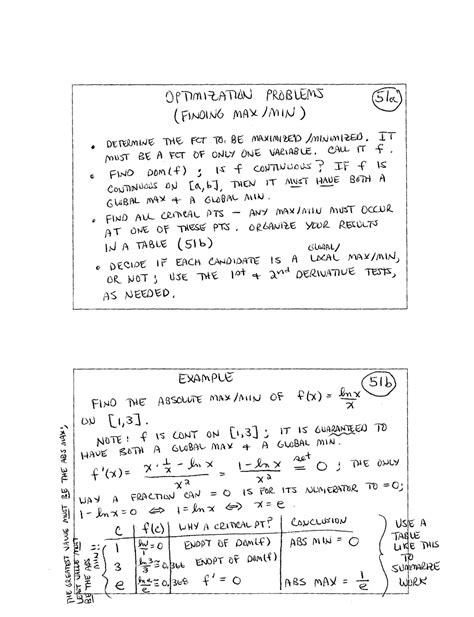 OPTIMIZATION PROBLEMS
51a
(FINDING MAX/MIN)
• DETERMINE THE FCT TO BE MAXIMIZED/MINIMIZED. IT
MUST BE A FCT OF ONLY ONE VARIABLE. CALL IT f.
• FIND DOM(f); IS f CONTINUOUS? IF f IS
CONTINUOUS ON [a,b], THEN IT MUST HAVE BOTH A
GLOBAL MAX & A GLOBAL MIN.
• FIND ALL CRITICAL PTS — ANY MAX/MIN MUST OCCUR
AT ONE OF THESE PTS. ORGANIZE YOUR RESULTS
IN A TABLE (51b)
• DECIDE IF EACH CANDIDATE IS A GLOBAL/LOCAL MAX/MIN,
OR NOT; USE THE 1st & 2nd DERIVATIVE TESTS,
AS NEEDED.
EXAMPLE
51b
FIND THE ABSOLUTE MAX/MIN OF f(x) = ln x / x
ON [1,3].
NOTE: f IS CONT ON [1,3]; IT IS GUARANTEED TO
HAVE BOTH A GLOBAL MAX & A GLOBAL MIN.
f'(x) = (x · 1/x - ln x) / x² = (1 - ln x) / x² set = 0; THE ONLY
WAY A FRACTION CAN = 0 IS FOR ITS NUMERATOR TO = 0;
1 - ln x = 0 ⇔ 1 = ln x ⇔ x = e.
c | f(c) | WHY A CRITICAL PT? | CONCLUSION
1 | ln 1 / 1 = 0 | ENDPT OF DOM(f) | ABS MIN = 0
3 | ln 3 / 3 ≅ 0.366 | ENDPT OF DOM(f)
e | ln e / e ≅ 0.368 | f' = 0 | ABS MAX = 1/e
USE A
TABLE
LIKE THIS
TO
SUMMARIZE
WORK
THE GREATEST VALUE MUST BE THE ABS MAX;
LEAST VALUE MUST
BE THE ABS MIN!!